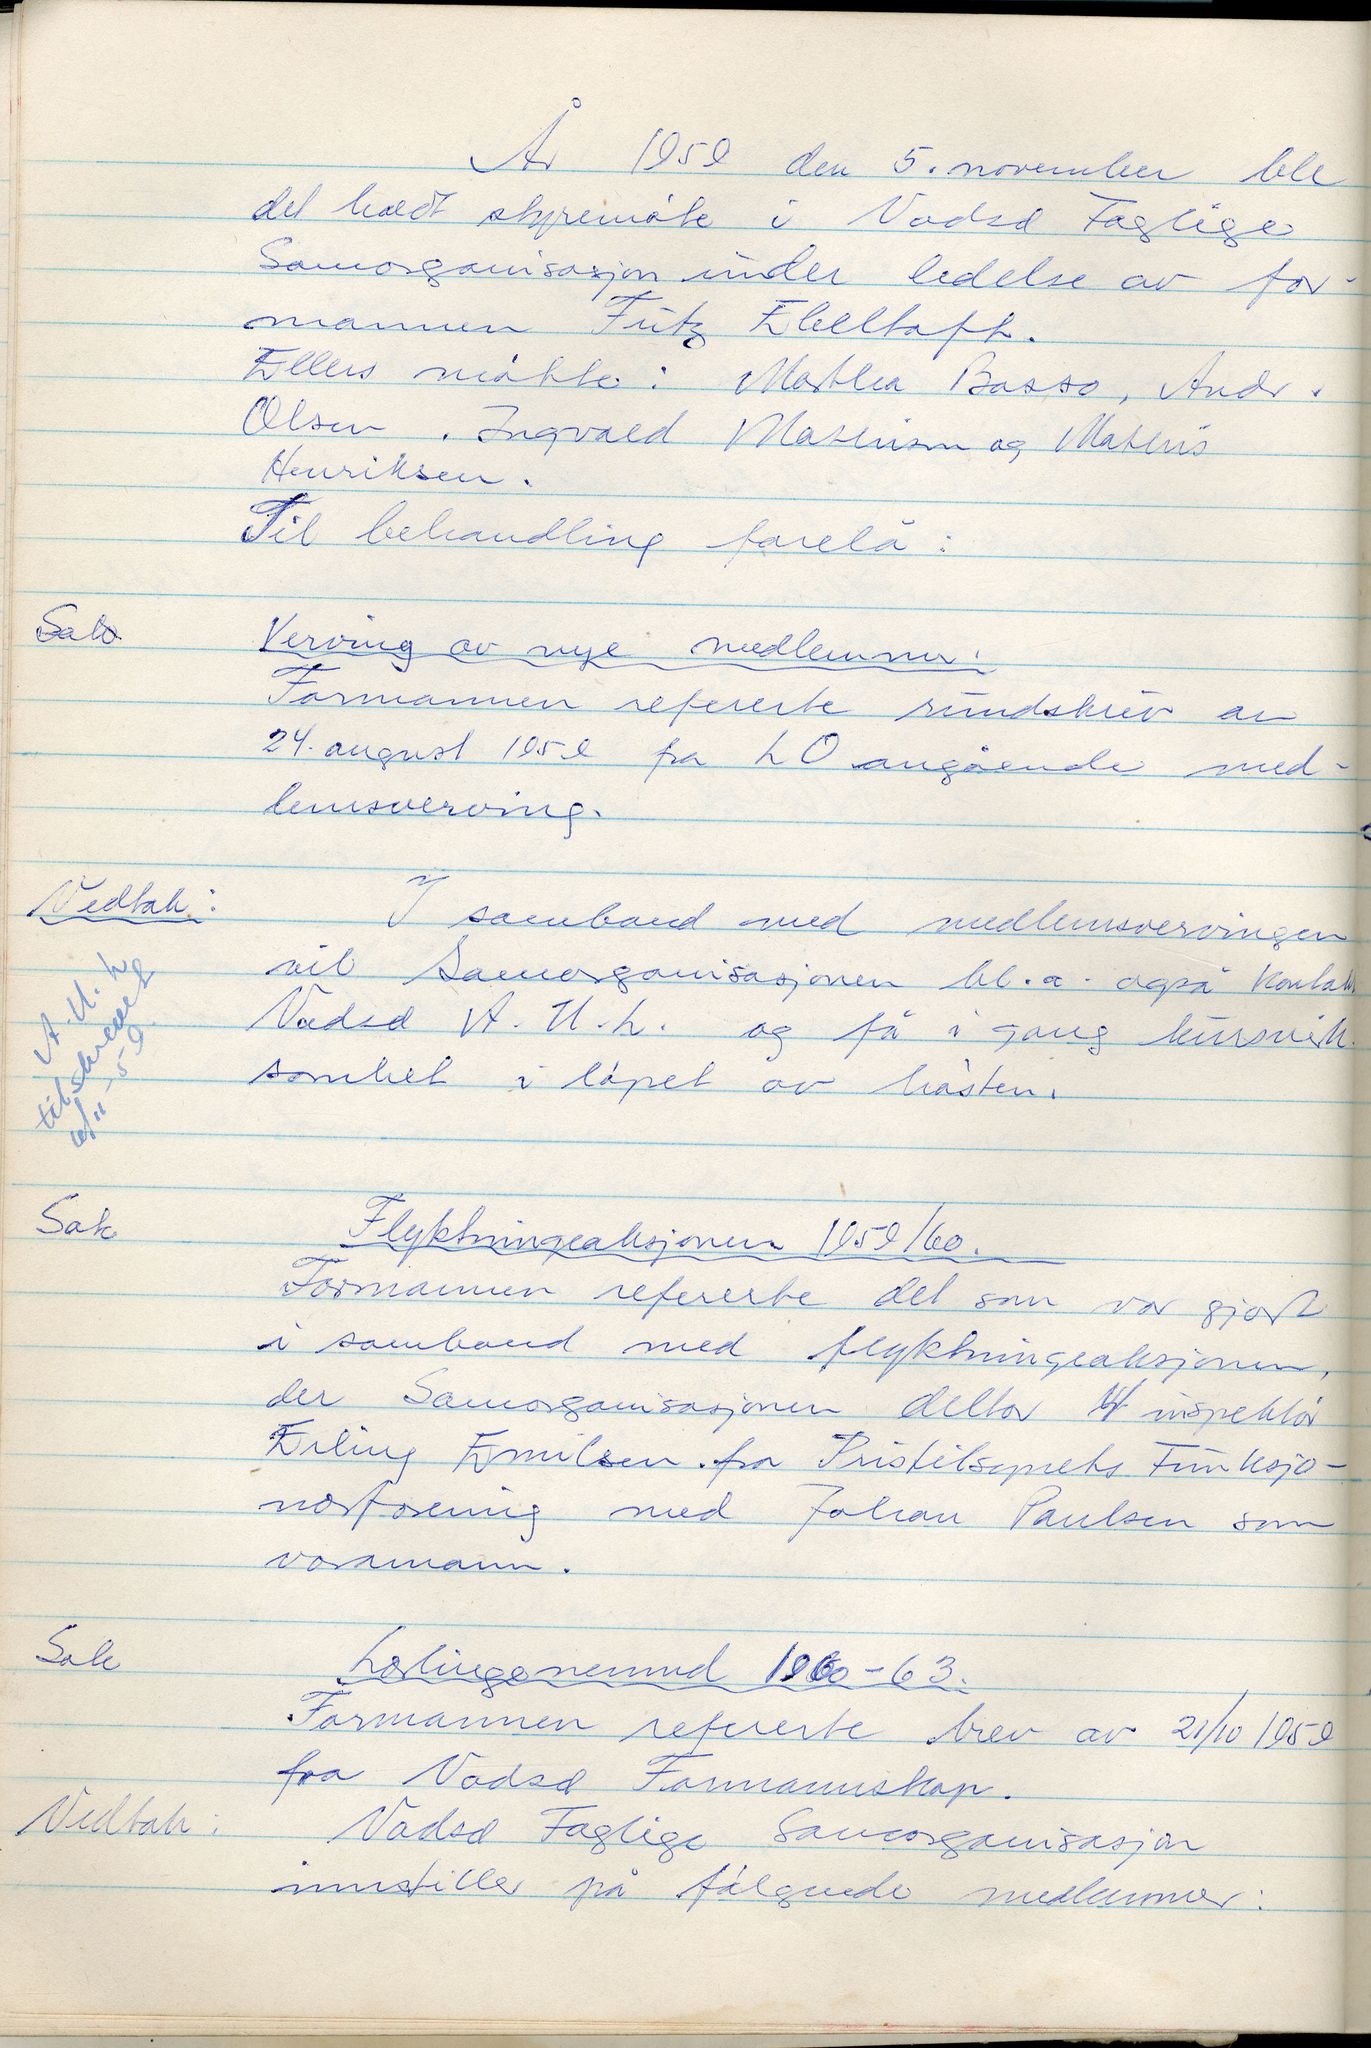 År 1959 den 5. november ble
det holdt styremøte i Vadsø Faglige
Samorganisasjon under ledelse av for-
mannen Fritz Ebeltoft.
Ellers møtte: Marthea Basso, Andr.
Olsen. Ingvald Mathisen og Mathis
Henriksen.
Til behandling forelå:
Sak
Verving av nye medlemmer:
Formannen refererte rundskriv av
24. august 1959 fra LO angående med-
lemsverving.
Vedtak:
I samband med medlemsvervingen
vil Samorganisasjonen bl.a. også kontak.
Vadsø A.U.L. og få i gang kursvirk.
somhet i løpet av høsten.
A.U.L
tilskrevet
6/11-59
Sak
Flyktningeaksjonen 1959/60.
Formannen refererte det som var gjort
i samband med flyktningeaksjonen,
der Samorganisasjonen deltar v/ inspektør
Erling Emilsen fra Pristilsynets Funksjo-
nærforening med Johan Paulsen som
varamann.
Sak
Lærlingenemnd 1960-63.
Formannen refererte brev av 21/10 1959
fra Vadsø Formannskap.
Vedtak:
Vadsø Faglige Samorganisasjon
innstiller på følgende medlemmer: